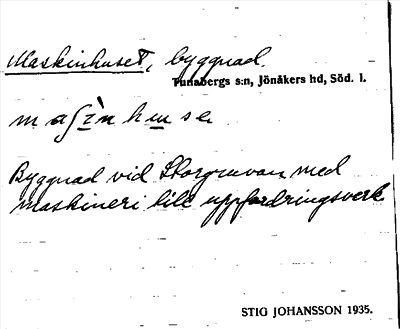 Maskinhuset, byggnad.
Tunabergs s:n, Jönåkers hd, Söd. l.
maʃi̱nhu̱se
Byggnad vid Storgruvan med
maskineri till uppfordringsverk.
STIG JOHANSSON 1935.